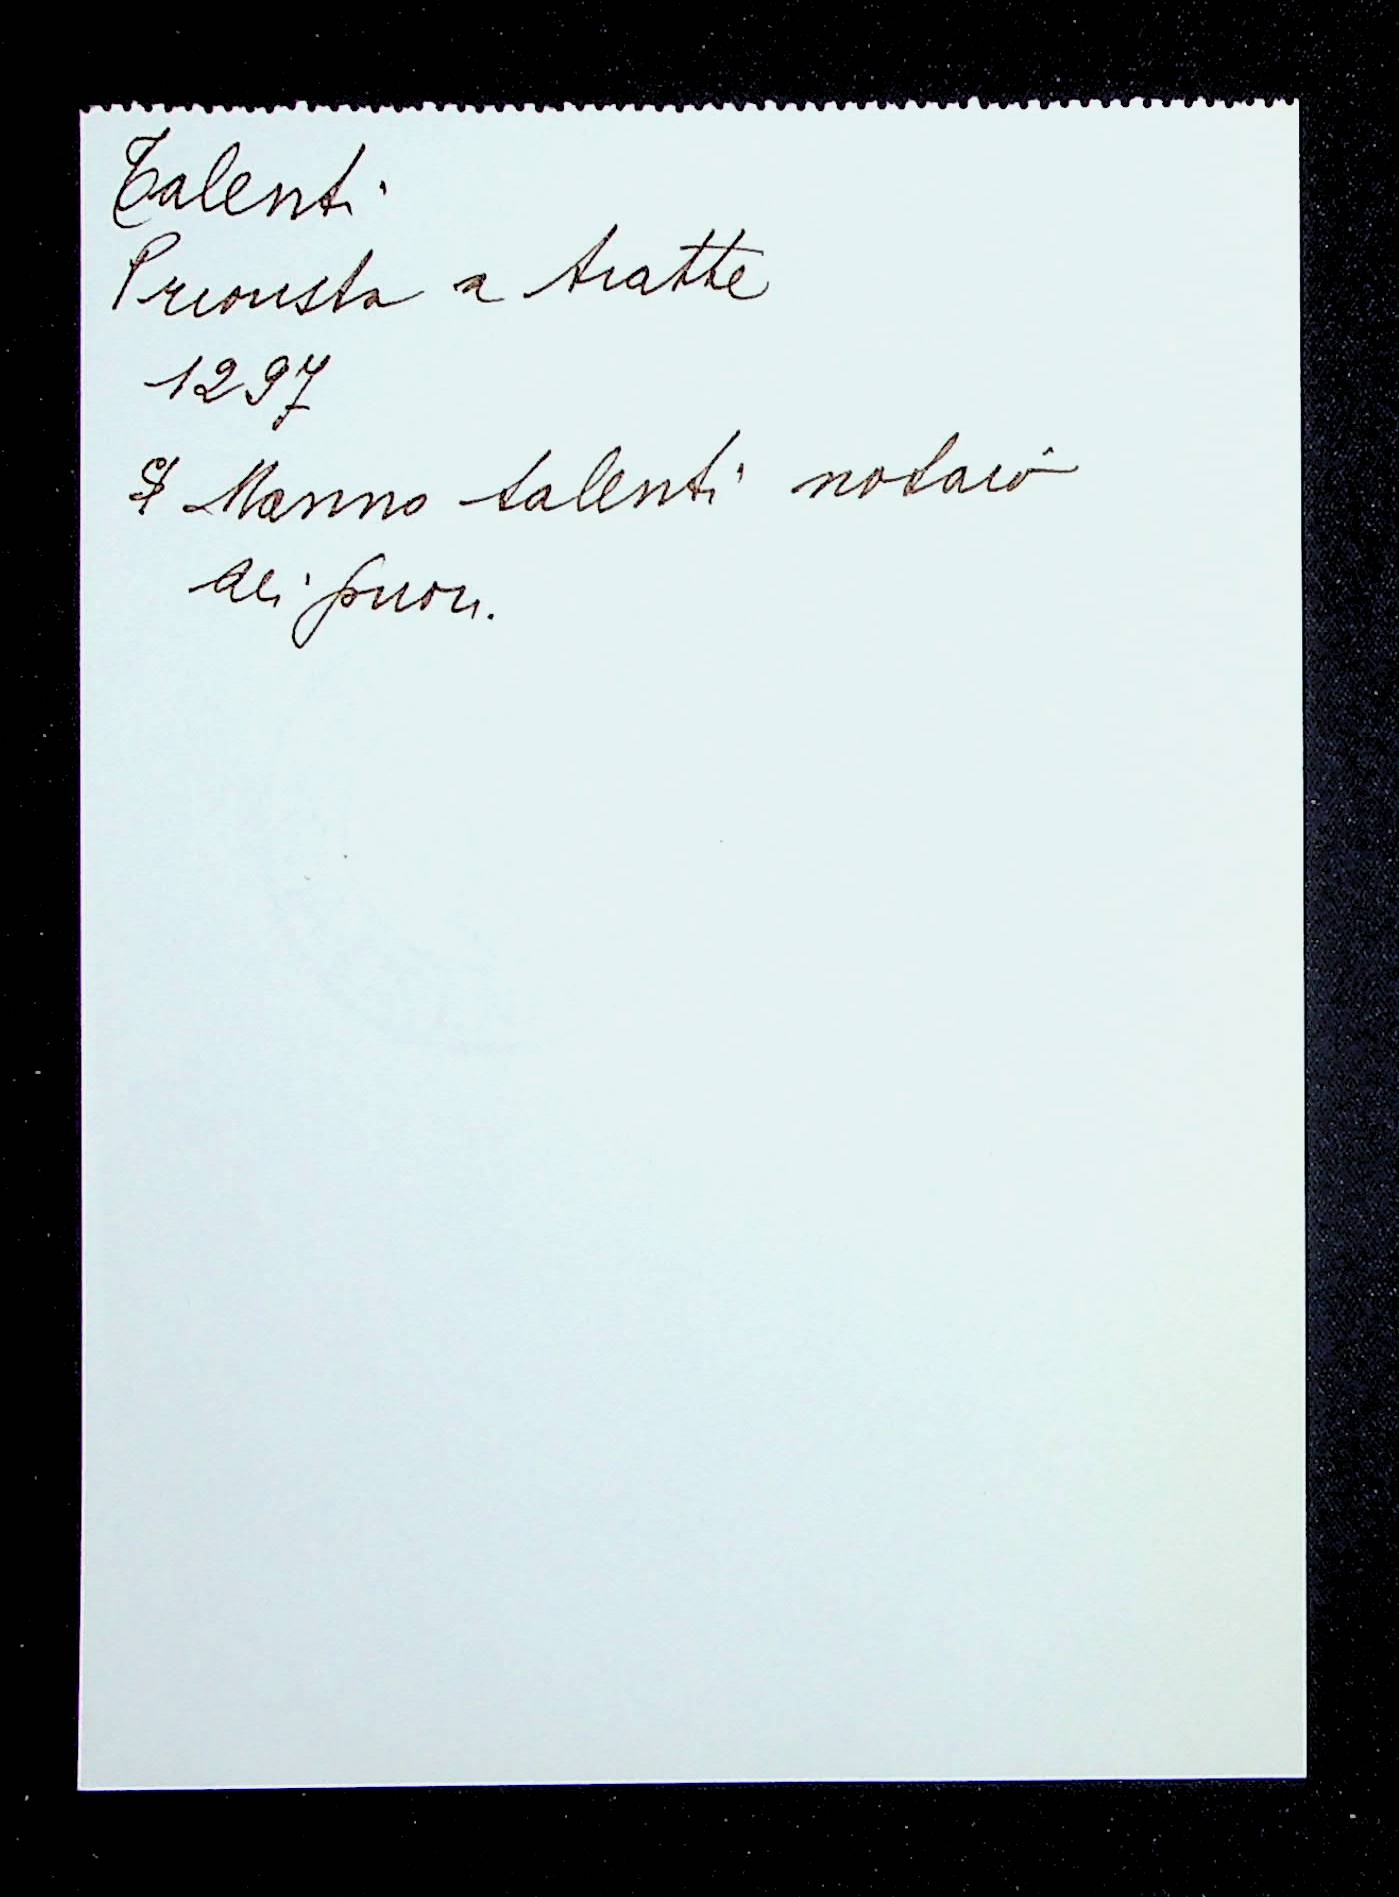 Talenti
Priorista a tratte
1297
S Manno talenti notaio
dei priori.